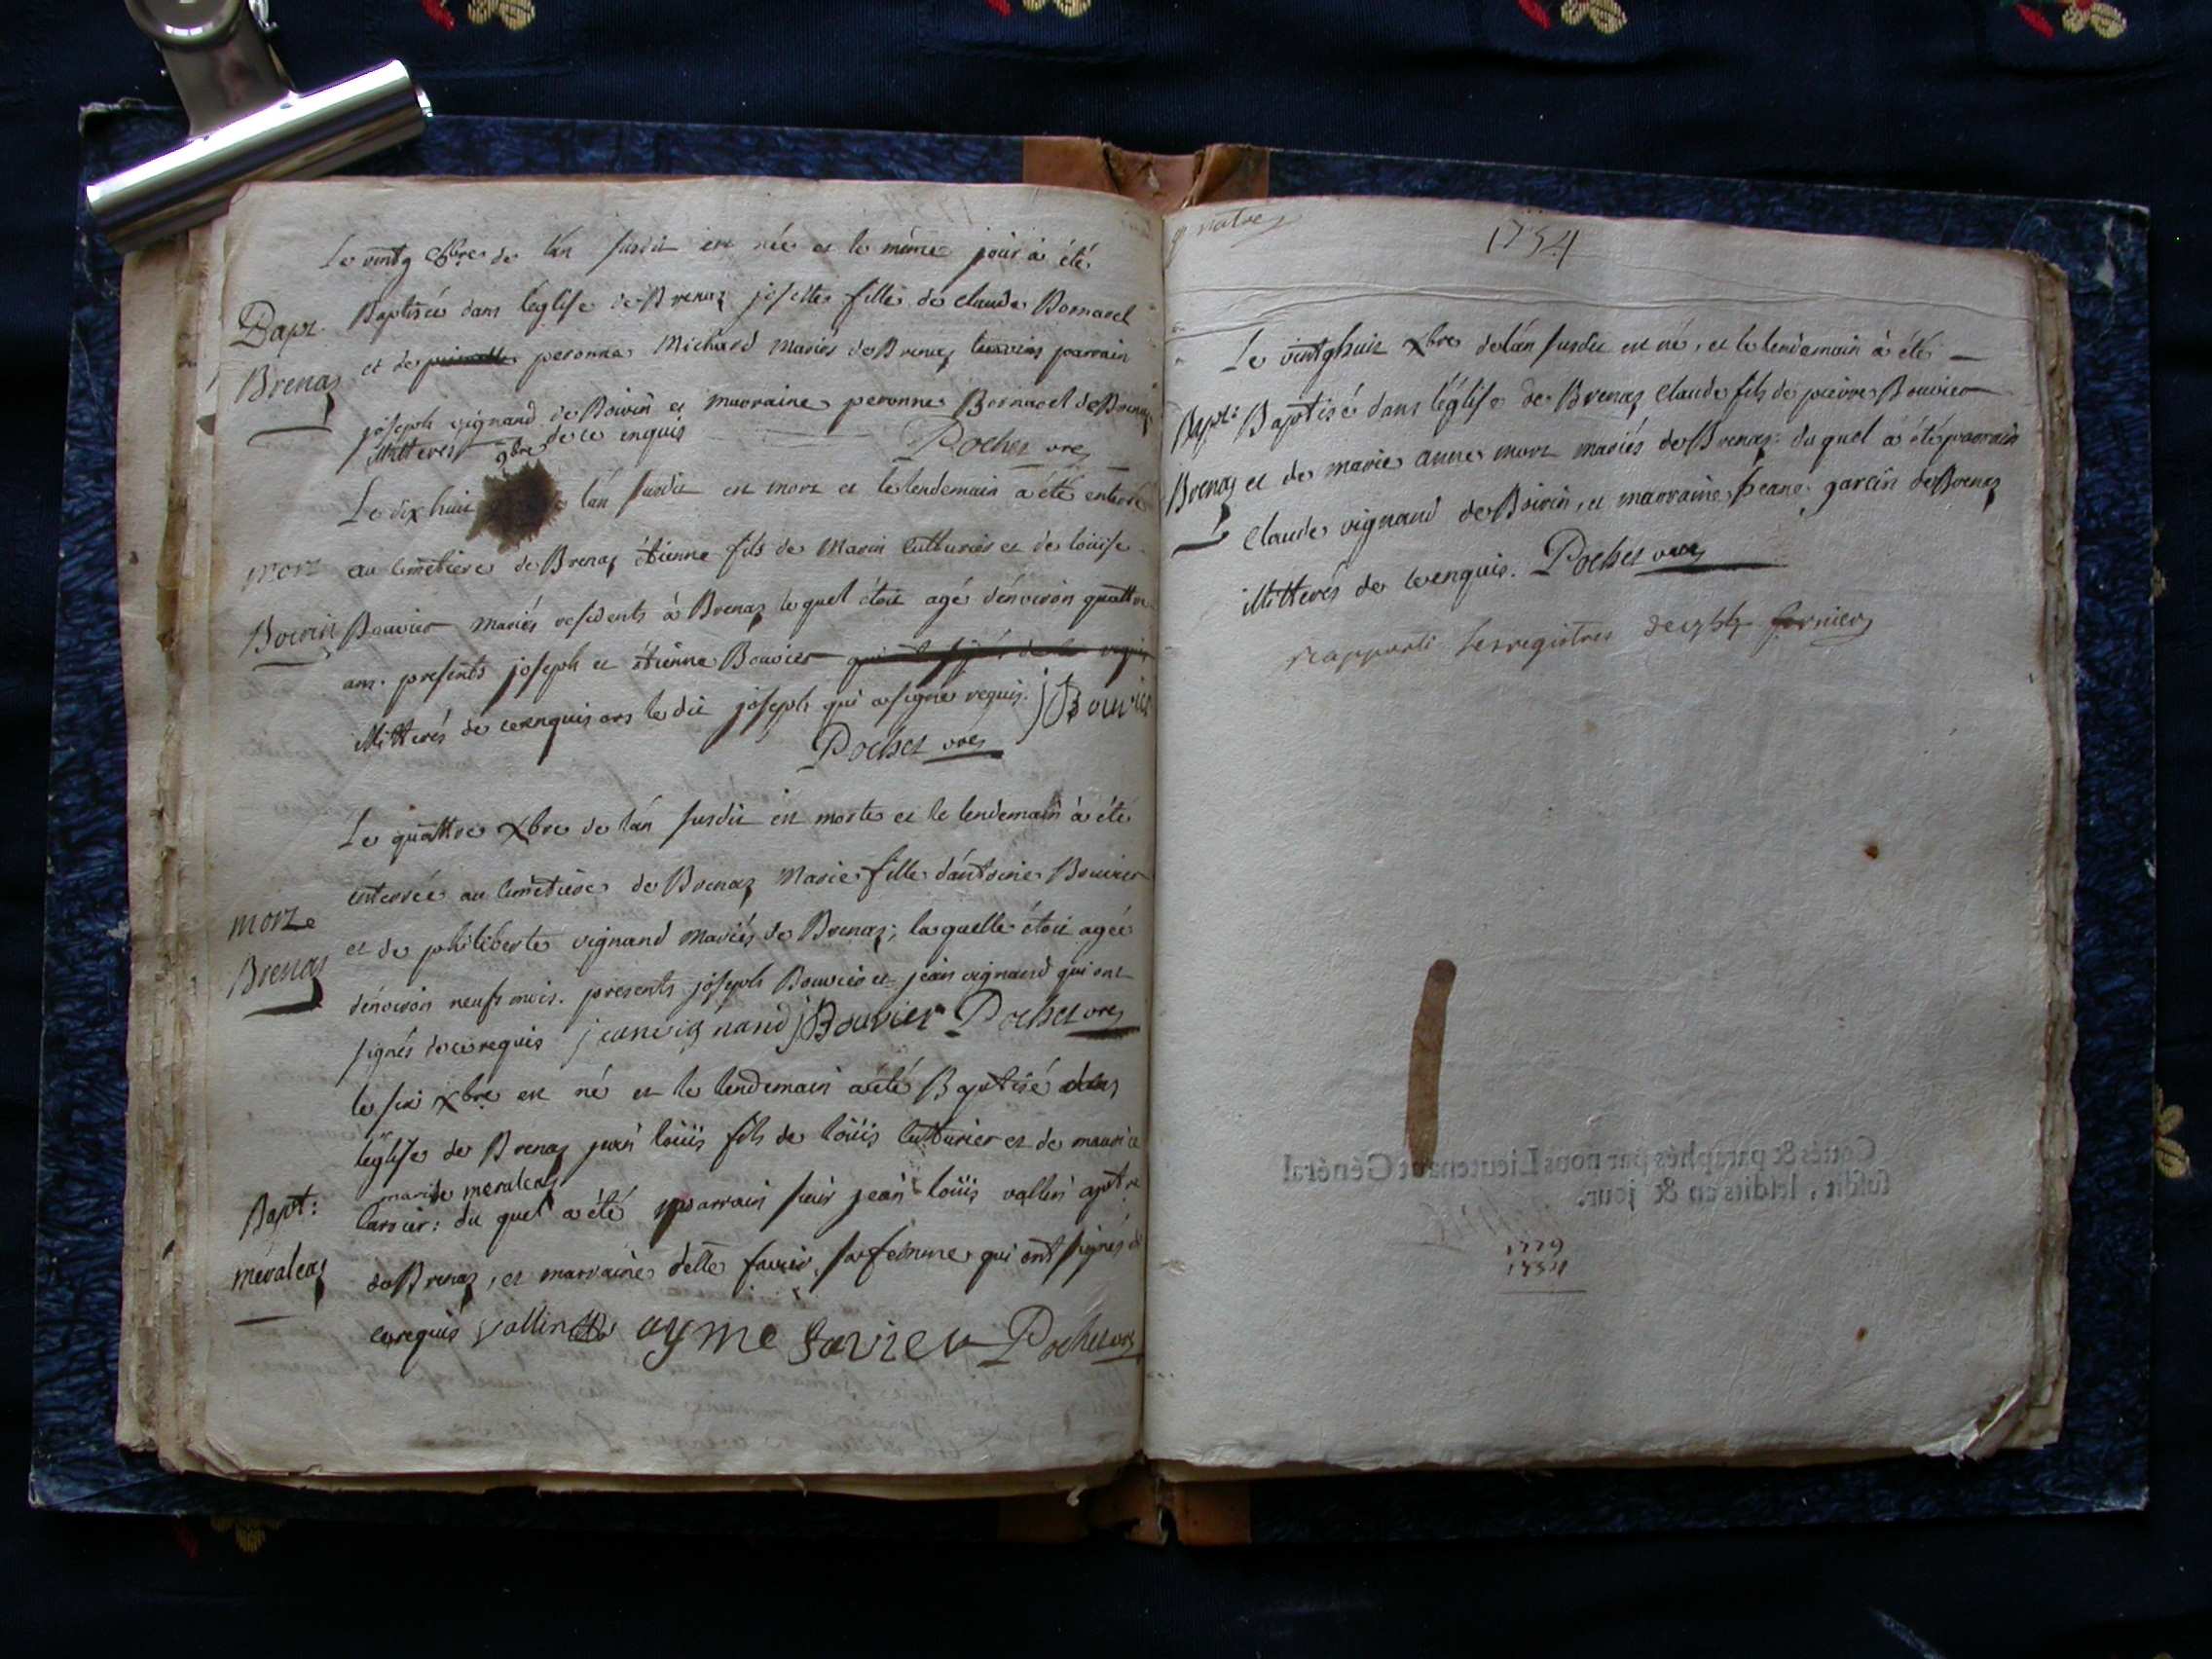 Le vintg 8bre de l'án susdit est née et le même jour à été
Bapt. Baptisée dans léglise de Brenaz josette fille de claude Bornarel
Brenaz et de peronne Michard Mariés de Brenaz parrain
joseph vignand de Boirin et marraine peronne Bornarel de Brenaz
illitteres de ce enquis Pochet vre
9bre
Le dix huit l'án susdit est mort et le lendemain à été enterré
mort au cimetiere de Brenaz étienne fils de Marin Cutturier et de loüise
Boirin Bouvier mariés residents à Brenaz lequel étoit agé dénviron quattre
ans. presents joseph et étienne Bouvier
illitterés de ce enquis ors le dit joseph qui a signé requis. j Bouvier
Pochet vre
Le quattre Xbre de l'án susdit est morte et le lendemain à été
enterrée au cimetiere de Brenaz Marie fille dántoine Bouvier
morte et de philiberte vignand Mariés de Brenaz; laquelle étoit agée
Brenaz dénviron neufs mois. présents joseph Bouvier et jean vignand qui ont
signés de ce requis jean vignand j Bouvier Pochet vre
le six Xbre est né et le lendemain a été Baptisé dans
léglise de Brenaz jean loüis fils de loüis Cutturier et de maurice
mariés de meraleaz
Bapt: du quel a été parrain sieur jean loüis vallin
meraleaz de Brenaz, et marraine delle favier sa femme qui ont signés de
ce requis vallin ayme favier Pochet vre
1754
Le vintghuit Xbre de l'án susdit est né, et le lendemain à été
Bapt: Baptisé dans l'église de Brenaz Claude fils de pierre Bouvier
Brenaz et de marie anne mort mariés de Brenaz: du quel à été parrain
Claude vignand de Boirin, et marraine jeane garcin de Brenaz
illitterés de ce enquis. Pochet vre
rapporté les registres
Cottés & paraphés par nous Lieutenant Général
susdit, lesdits an & jour.
1779
1754